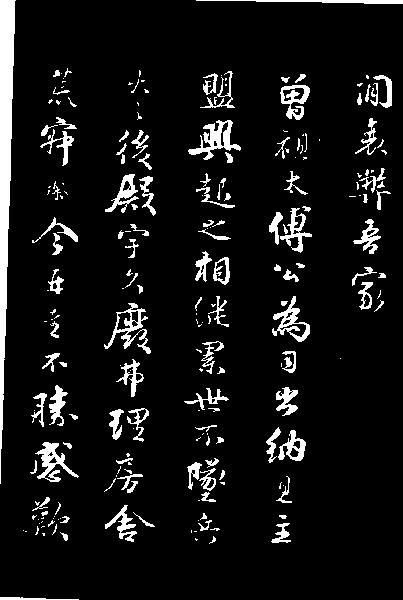 間衰弊吾家
曾祖太傅公為司出納見主
盟興起之相継累世不墜兵
火之後殿宇久廢弗理房舍
荒今再至不勝感歎